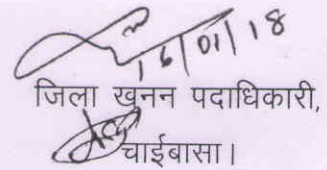 16/01/18
जिला खनन पदाधिकारी,
चाईबासा।